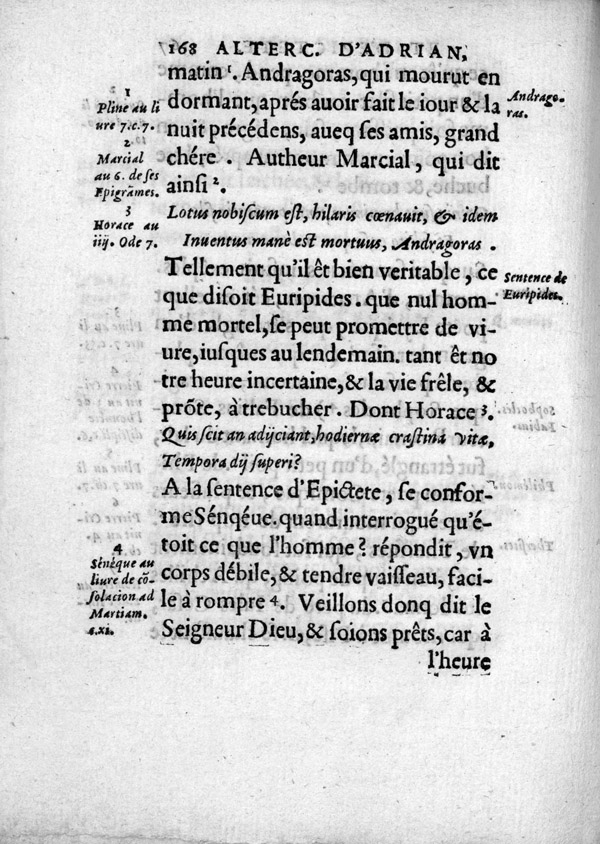 168 ALTERC. D'ADRIAN,
matin¹. Andragoras, qui mourut en
dormant, aprés auoir fait le iour & la
nuit précédens, aueq ſes amis, grand
chére. Autheur Marcial, qui dit
ainſi².
Lotus nobiſcum eſt, hilaris cœnauit, & idem
Inuentus manè est mortuus, Andragoras.
Tellement qu'il êt bien veritable, ce
que diſoit Euripides. que nul hom-
me mortel, ſe peut promettre de vi-
ure, iuſques au lendemain. tant êt no
tre heure incertaine, & la vie frêle, &
prõte, à trebucher. Dont Horace³.
Quis ſcit an adijciant, hodiernæ craſtina vitæ,
Tempora dij ſuperi?
A la ſentence d'Epictete, ſe confor-
me Sénqéue. quand interrogué qu'é-
toit ce que l'homme? répondit, vn
corps débile, & tendre vaiſſeau, faci-
le à rompre⁴. Veillons donq dit le
Seigneur Dieu, & ſoions prêts, car à
l'heure
1
Pline au li
ure 7. c. 7.
2
Marcial
au 6. de ſes
Epigrãmes.
3
Horace au
iiij. Ode 7.
4
Sénèque au
liure de cõ-
ſolacion ad
Martiam.
c.xi.
Andrago-
ras.
Sentence de
Euripides.